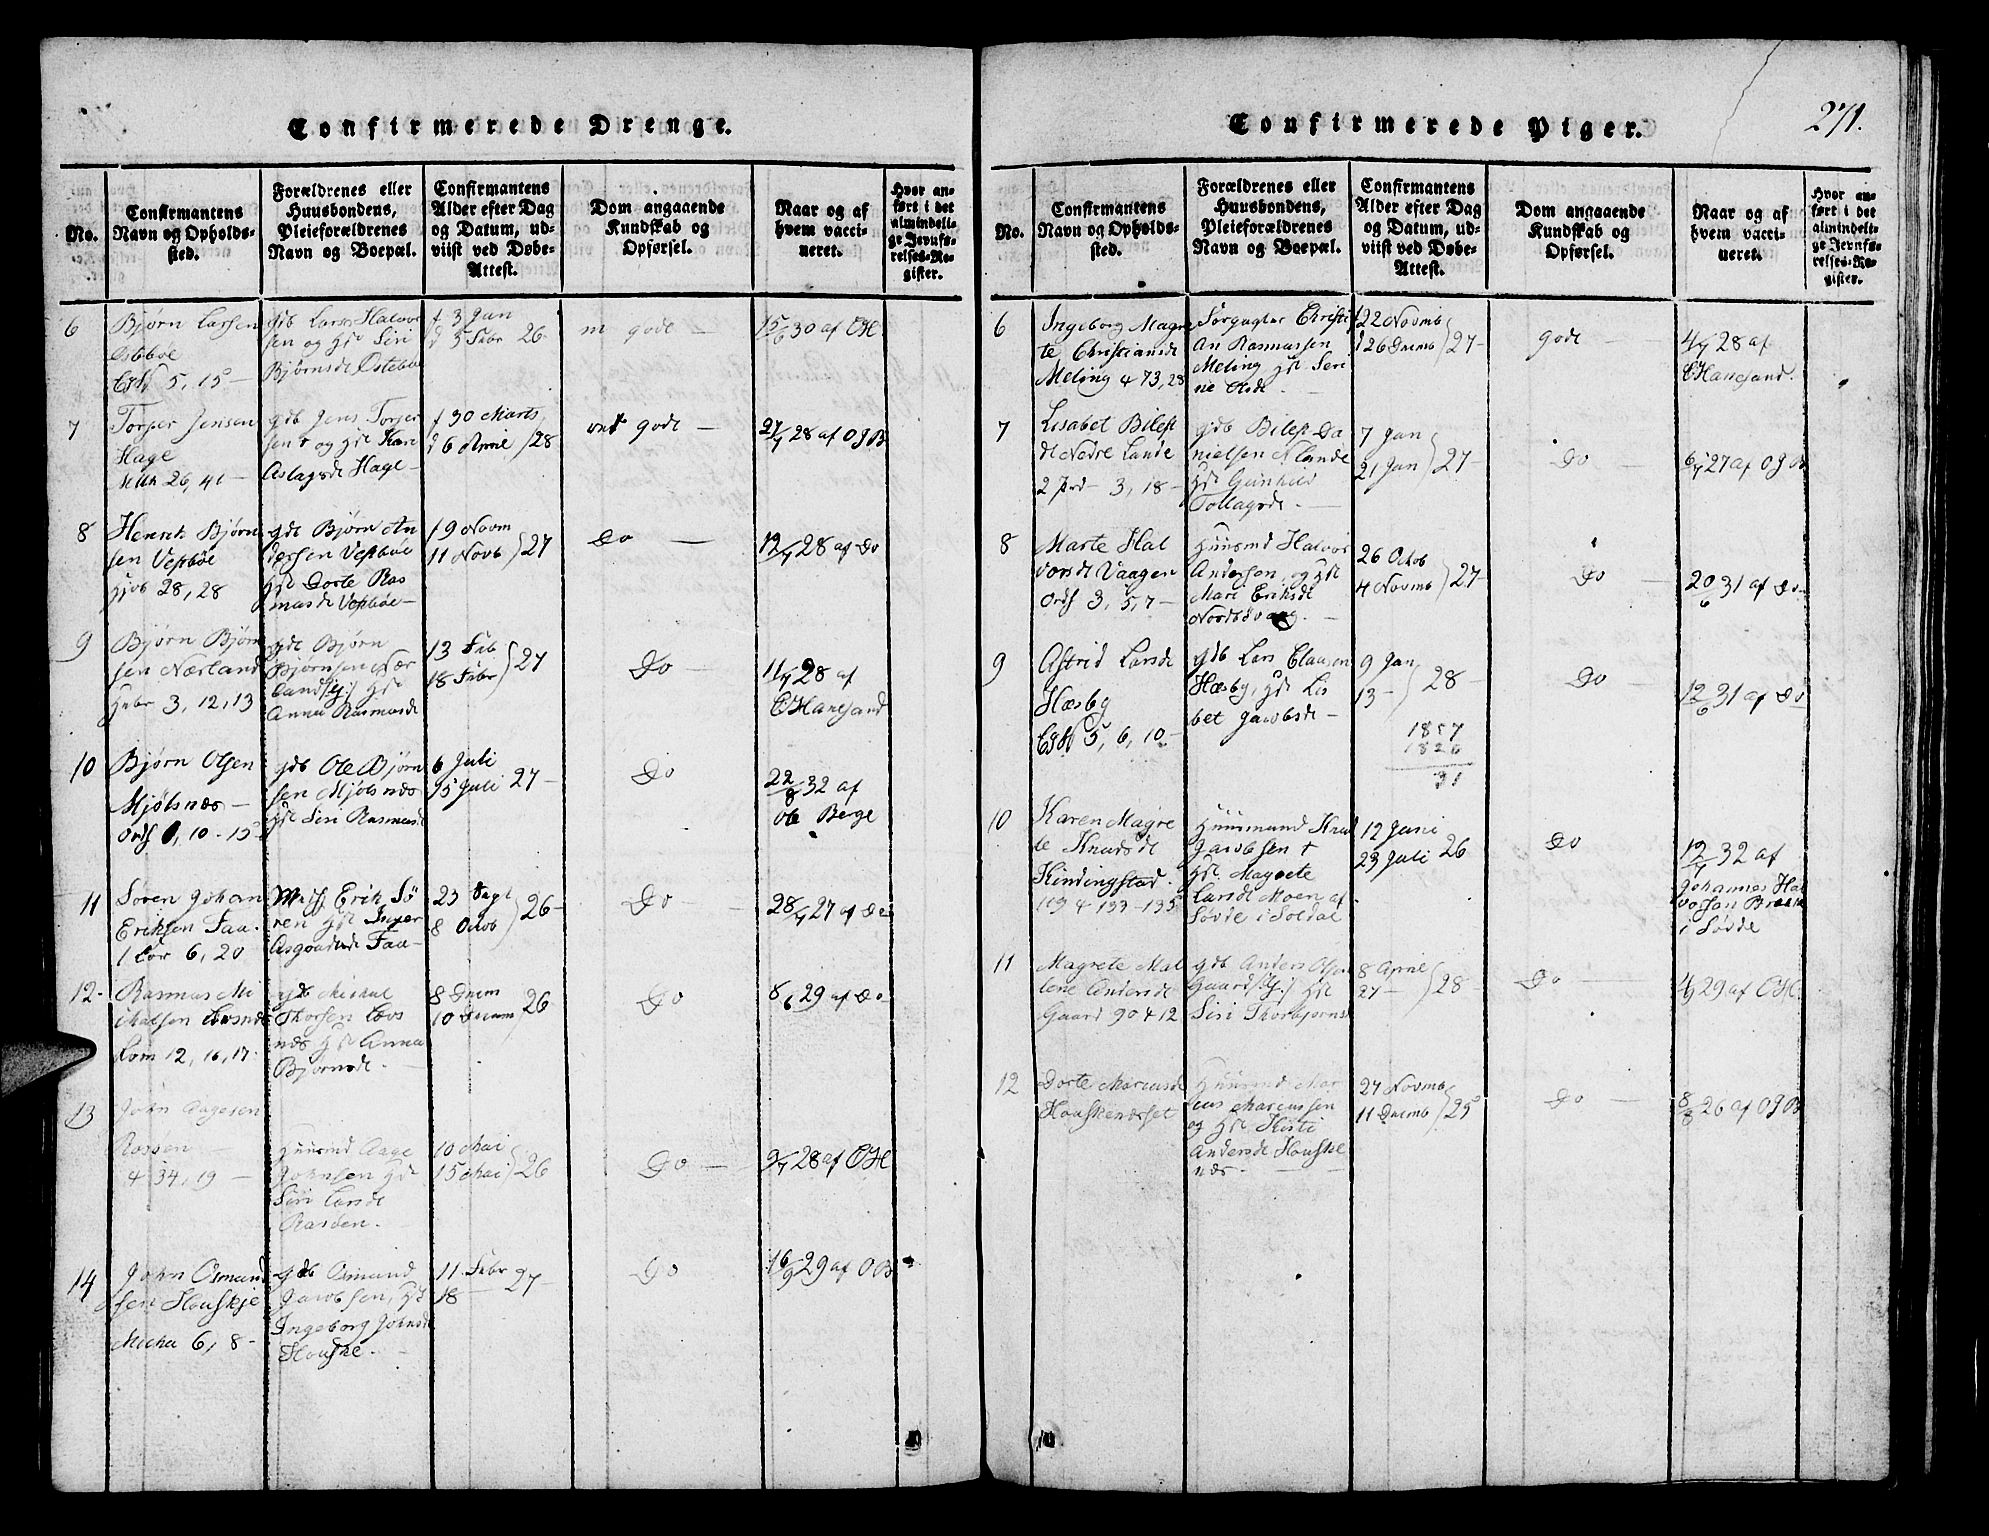 Confirmerede Drenge.
No.
Confirmantens
Navn og Opholds-
sted.
Forældrenes eller
Huusbondens,
Pleieforældrenes
Navn og Boepæl.
Confirmantens
Alder efter Dag
og Datum, ud-
viist ved Døbe-
Attest.
Dom angaaende
Kundskab og
Opførsel.
Naar og af
hvem vacci-
neret.
Hvor an-
ført i det
almindeli-
ge Jevnfø-
relses-Re-
gister.
6
Bjørn Larsen
Østebøe
5, 15 -
gdb Lars Halvor
sen og hst Siri
Bjørnsdt Østebøe
f 3 Jan
d 5 Febr 26
m gode -
15/6 30 af CH
7
Torger Jensen
Hage
26, 41 -
gdb Jens Torger
sen og hst Kari
Aslagsdt Hage -
f 30 Marts
d 6 April } 28
gode -
27/7 28 af OJB
8
Henrik Bjørn
sen Vestbøe
hjob 28, 28
gdb Bjørn An
dersen Vestbøe
hst Dorte Ras
musdt Vestbøe -
19 Novm
11 Novb } 27
Do -
12/7 28 af Do
9
Bjørn Bjørn
sen Nærland
Hebr 3, 12, 13
gdb Bjørn
Bjørnsen Nær
land hst
Anna Rasmusdt
13 Feb
18 Febr } 27
Do -
11/7 28 af
CHanesand
10
Bjørn Olsen
Mjølsnæs -
Ords 9, 10 - 15
gdb Ole Bjørn
sen Mjølsnæs
hst Siri Rasmusdt
6 Juli
15 Juli 27 -
Do
22/8 32 af
Ole Berge
11
Søren Johan
Eriksen Faa
1 Cor 6, 20
Erik Sø
ren hst Inger
Asgoudsdt Faa -
23 Sept
8 Octob } 26 -
Do -
28/7 27 af Do
12 -
Rasmus Mi
chalsen
Rom 12, 16, 17.
gdb Michal
Thorsen Løvs
næs hst Anna
Bjørnsdt. -
8 Decm
10 Decem } 26
Do
8/6 29 af Do
13
John Aagesen
Rossen -
4 34, 19 -
Huusmd Aage
Johnsen hst
Siri Larsdt
Rasden. -
10 Mai
15 Mai } 26
Do -
9/7 28 af CH
14
John Osmund
sen Houskje
Micha 6, 8 -
gdb Osmund
Jacobsen, hst
Ingeborg Johnsdt
Houske. -
11 Febr
18 - 27 -
Do
16/9 29 af OB
Confirmerede Piger.
271.
No.
Confirmantens
Navn og Opholds-
sted.
Forældrenes eller
Huusbondens,
Pleieforældrenes
Navn og Boepæl.
Confirmantens
Alder efter Dag
og Datum, ud-
viist ved Døbe-
Attest.
Dom angaaende
Kundskab og
Opførsel.
Naar og af
hvem vacci-
neret.
Hvor an-
ført i det
almindeli-
ge Jevnfø-
relses-Re-
gister.
6
Ingeborg Magre
te Christiansdt
Meling 4 73, 28
Christi
an Rasmussen
Meling hst Seri
ne
f 22 Novmb
d 26 Decmb } 27 -
gode -
4/7 28 af
CHanesand.
7
Lisabet Bilest
dt Nedre Lande
2 Ped - 3, 18 -
gdb Bilest Da
nielsen N Lande
hst Gunhild
Tollagsdt. -
7 Jan
21 Jan } 27 -
Do -
6/7 27 af OJB
8
Marte Hal
vorsdt Vaagen
Ords 3, 5, 7 -
Huusmd Halvor
Andersen, og hst
Mari Eriksdt
Nordsvaag. -
26 Octob
4 Novmb } 27 -
Do -
20/6 31 af Do
9
Astrid Larsdt
Hæsby
5, 6, 10 -
gdb Lars Clausen
Hæsby, hst Lis
bet Jacobsdt -
9 Jan
13 - } 28 -
1857
1826
31
Do
12/6 31 af Do
10
Karen Magre
te Knudsdt
Kindingstad.
4 133 - 135
Huusmand Knud
Jacobsen †
hst Magrete
Larsdt Moen af
Søvde i Soldal
12 Juni
23 Juli 26
Do
12/7 32 af
Johannes Hal
vorsen
i Søvde
11
Magrete Mal
lene Andersdt
Gaard 90 4 12
gdb Anders Olsen
Gaard hst
Siri Thorbjørnsd
8 April
27 - } 28 -
Do -
4/9 29 af CH.
12
Dorte Marcusdt
Houskenæset
Huusmd Mar
cus Marcussen
og hst Kisti
Andersdt Houske
næs. -
27 Novmb
11 Decmb } 25
Do -
8/8 26 af OJB